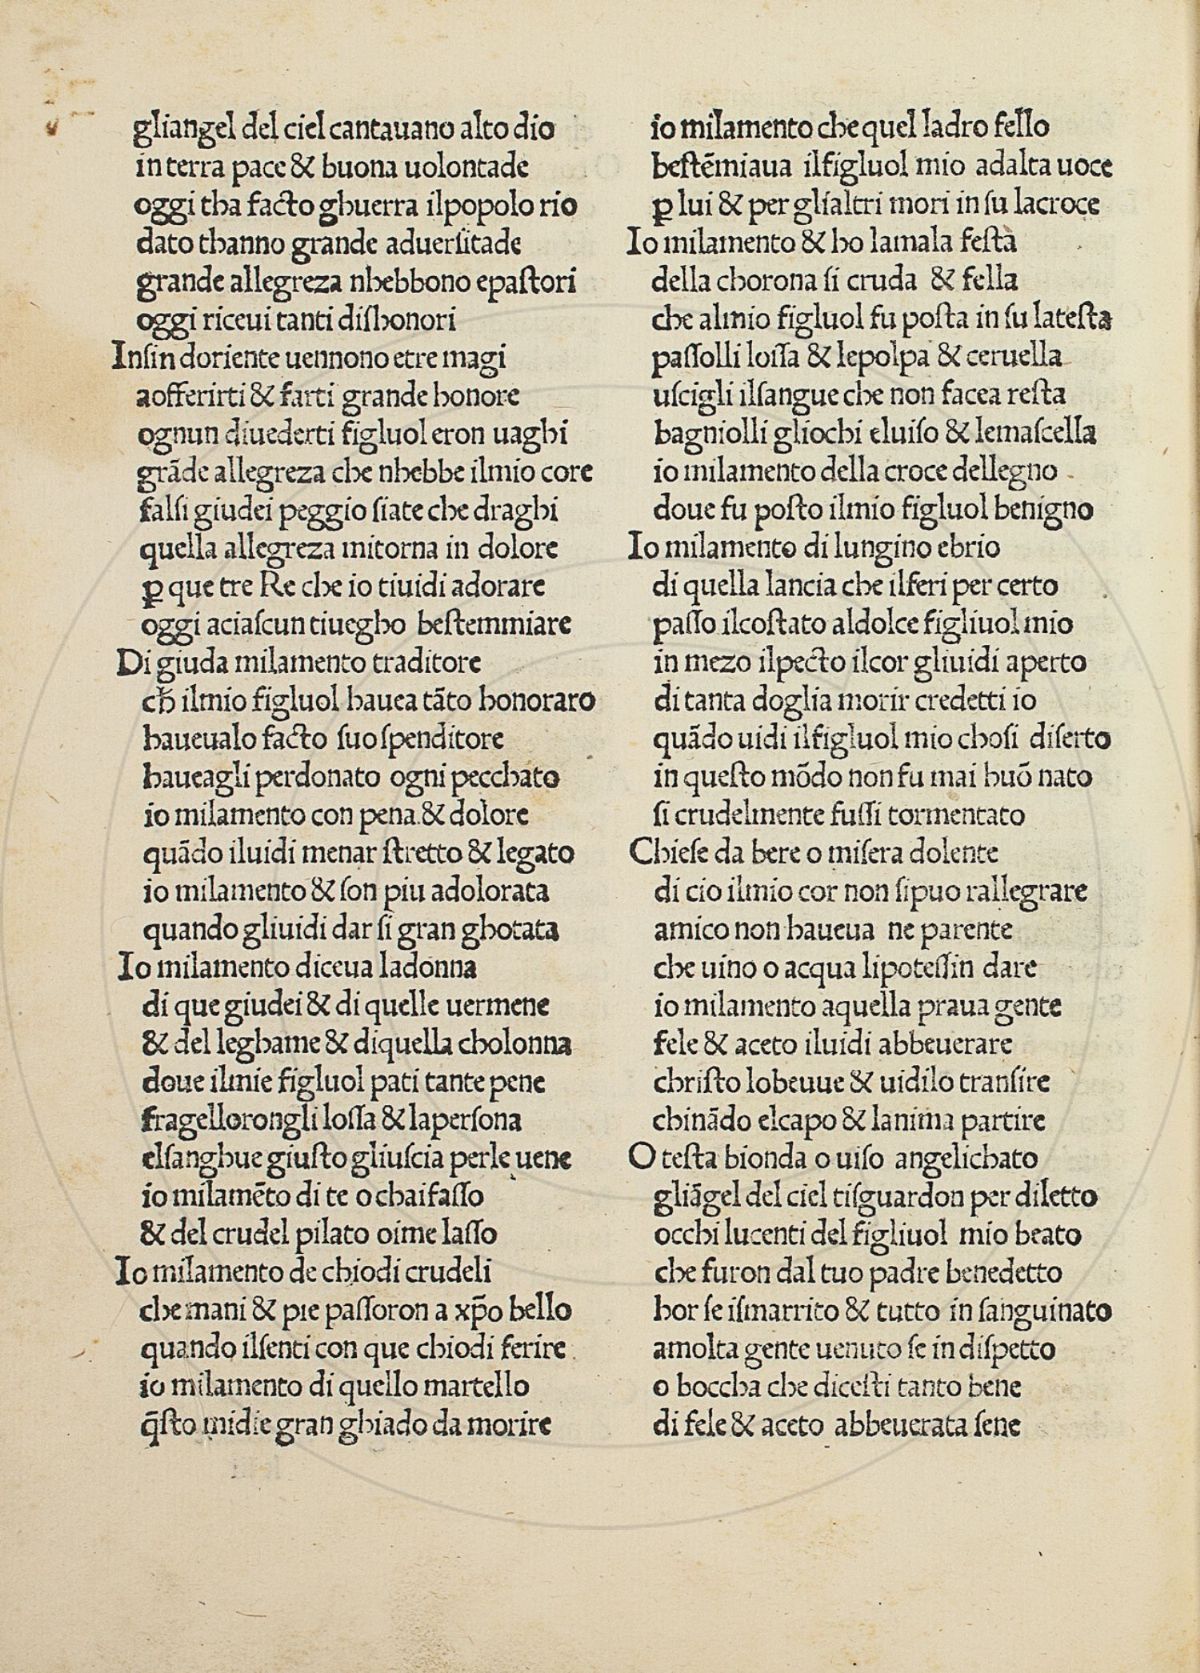 gliangel del ciel cantauano alto dio
in terra pace & buona uolontade
oggi tha facto ghuerra ilpopolo rio
dato thanno grande aduerſitade
grande allegreza nhebbono epaſtori
oggi riceui tanti diſhonori
Inſin doriente uennono etre magi
aofferirti & farti grande honore
ognun diuederti figluol eron uaghi
grāde allegreza che nhebbe ilmio core
falſi giudei peggio ſiate che draghi
quella allegreza mitorna in dolore
ꝑ que tre Re che io tiuidi adorare
oggi aciaſcun tiuegho beſtemmiare
Di giuda milamento traditore
cħ ilmio figluol hauea tāto honoraro
haueualo facto ſuo ſpenditore
haueagli perdonato ogni pecchato
io milamento con pena & dolore
quādo iluidi menar ſtretto & legato
io milamento & ſon piu adolorata
quando gliuidi dar ſi gran ghotata
Io milamento diceua ladonna
di que giudei & di quelle uermene
& del leghame & diquella cholonna
doue ilmie figluol pati tante pene
fragellorongli loſſa & laperſona
elſanghue giuſto gliuſcia perle uene
io milamēto di te o chaifaſſo
& del crudel pilato oime laſſo
Io milamento de chiodi crudeli
che mani & pie paſſoron a xp̄o bello
quando ilſenti con que chiodi ferire
io milamento di quello martello
q̄ſto midie gran ghiado da morire
io milamento che quel ladro fello
beſtēmiaua ilfigluol mio adalta uoce
ꝑ lui & per glialtri mori in ſu lacroce
Io milamento & ho lamala feſta
della chorona ſi cruda & fella
che almio figluol fu poſta in ſu lateſta
paſſolli loſſa & lepolpa & ceruella
uſcigli ilſangue che non facea reſta
bagniolli gliochi eluiſo & lemaſcella
io milamento della croce dellegno
doue fu poſto ilmio figluol benigno
Io milamento di lungino ebrio
di quella lancia che ilferi per certo
paſſo ilcoſtato aldolce figliuol mio
in mezo ilpecto ilcor gliuidi aperto
di tanta doglia morir credetti io
quādo uidi ilfigluol mio choſi diſerto
in queſto mōdo non fu mai huō nato
ſi crudelmente fuſſi tormentato
Chieſe da bere o miſera dolente
di cio ilmio cor non ſipuo rallegrare
amico non haueua ne parente
che uino o acqua lipoteſſin dare
io milamento aquella praua gente
fele & aceto iluidi abbeuerare
chriſto lobeuue & uidilo tranſire
chinādo elcapo & lanima partire
O teſta bionda o uiſo angelichato
gliāgel del ciel tiſguardon per diletto
occhi lucenti del figliuol mio beato
che furon dal tuo padre benedetto
hor ſe iſmarrito & tutto in ſanguinato
amolta gente uenuto ſe in diſpetto
o boccha che diceſti tanto bene
di fele & aceto abbeuerata ſene